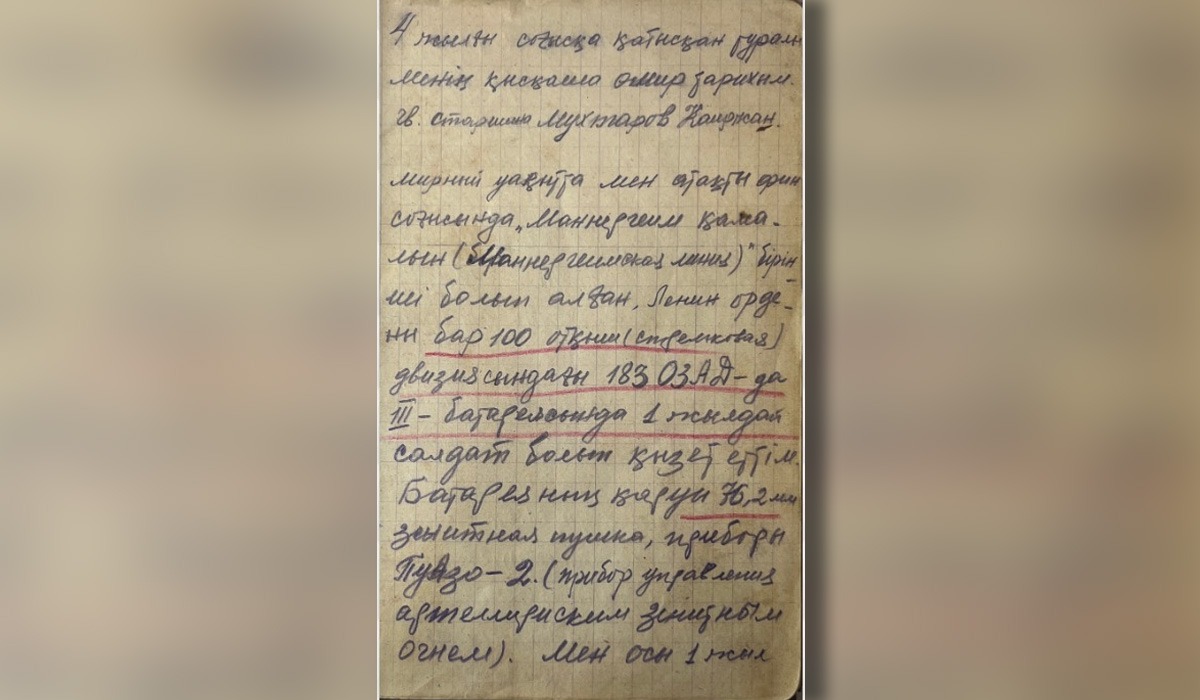 4 жылғы соғысқа қатысқан туралы
менің қысқаша омир тарихым.
гв. старшина Мухтаров Каиржан.
мирный уақытта мен атақты фин
соғысында, „Маннергеим қама-
лын (Маннергеимская линия)" бірін-
ші болып алған, Ленин орде-
ни бар 100 отқыш (стрелковая)
двизиясындағы 183 ОЗАД-да
III - батареясында 1 жылдай
салдат болып қызет еттім.
Батареяның қаруы 76,2 мм
зенитная пушка, приборы
Пуазо-2. (прибор управления
артеллириским зенитным
огнем). Мен осы 1 жыл